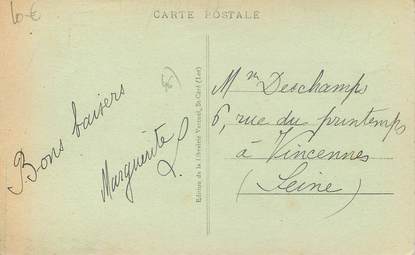 10 €
CARTE POSTALE
Bons baisers
Marguerite
Edition de la Librairie Vertuel, St-Céré (Lot)
Mme Deschamps
6, rue du printemps
à Vincennes
(Seine)